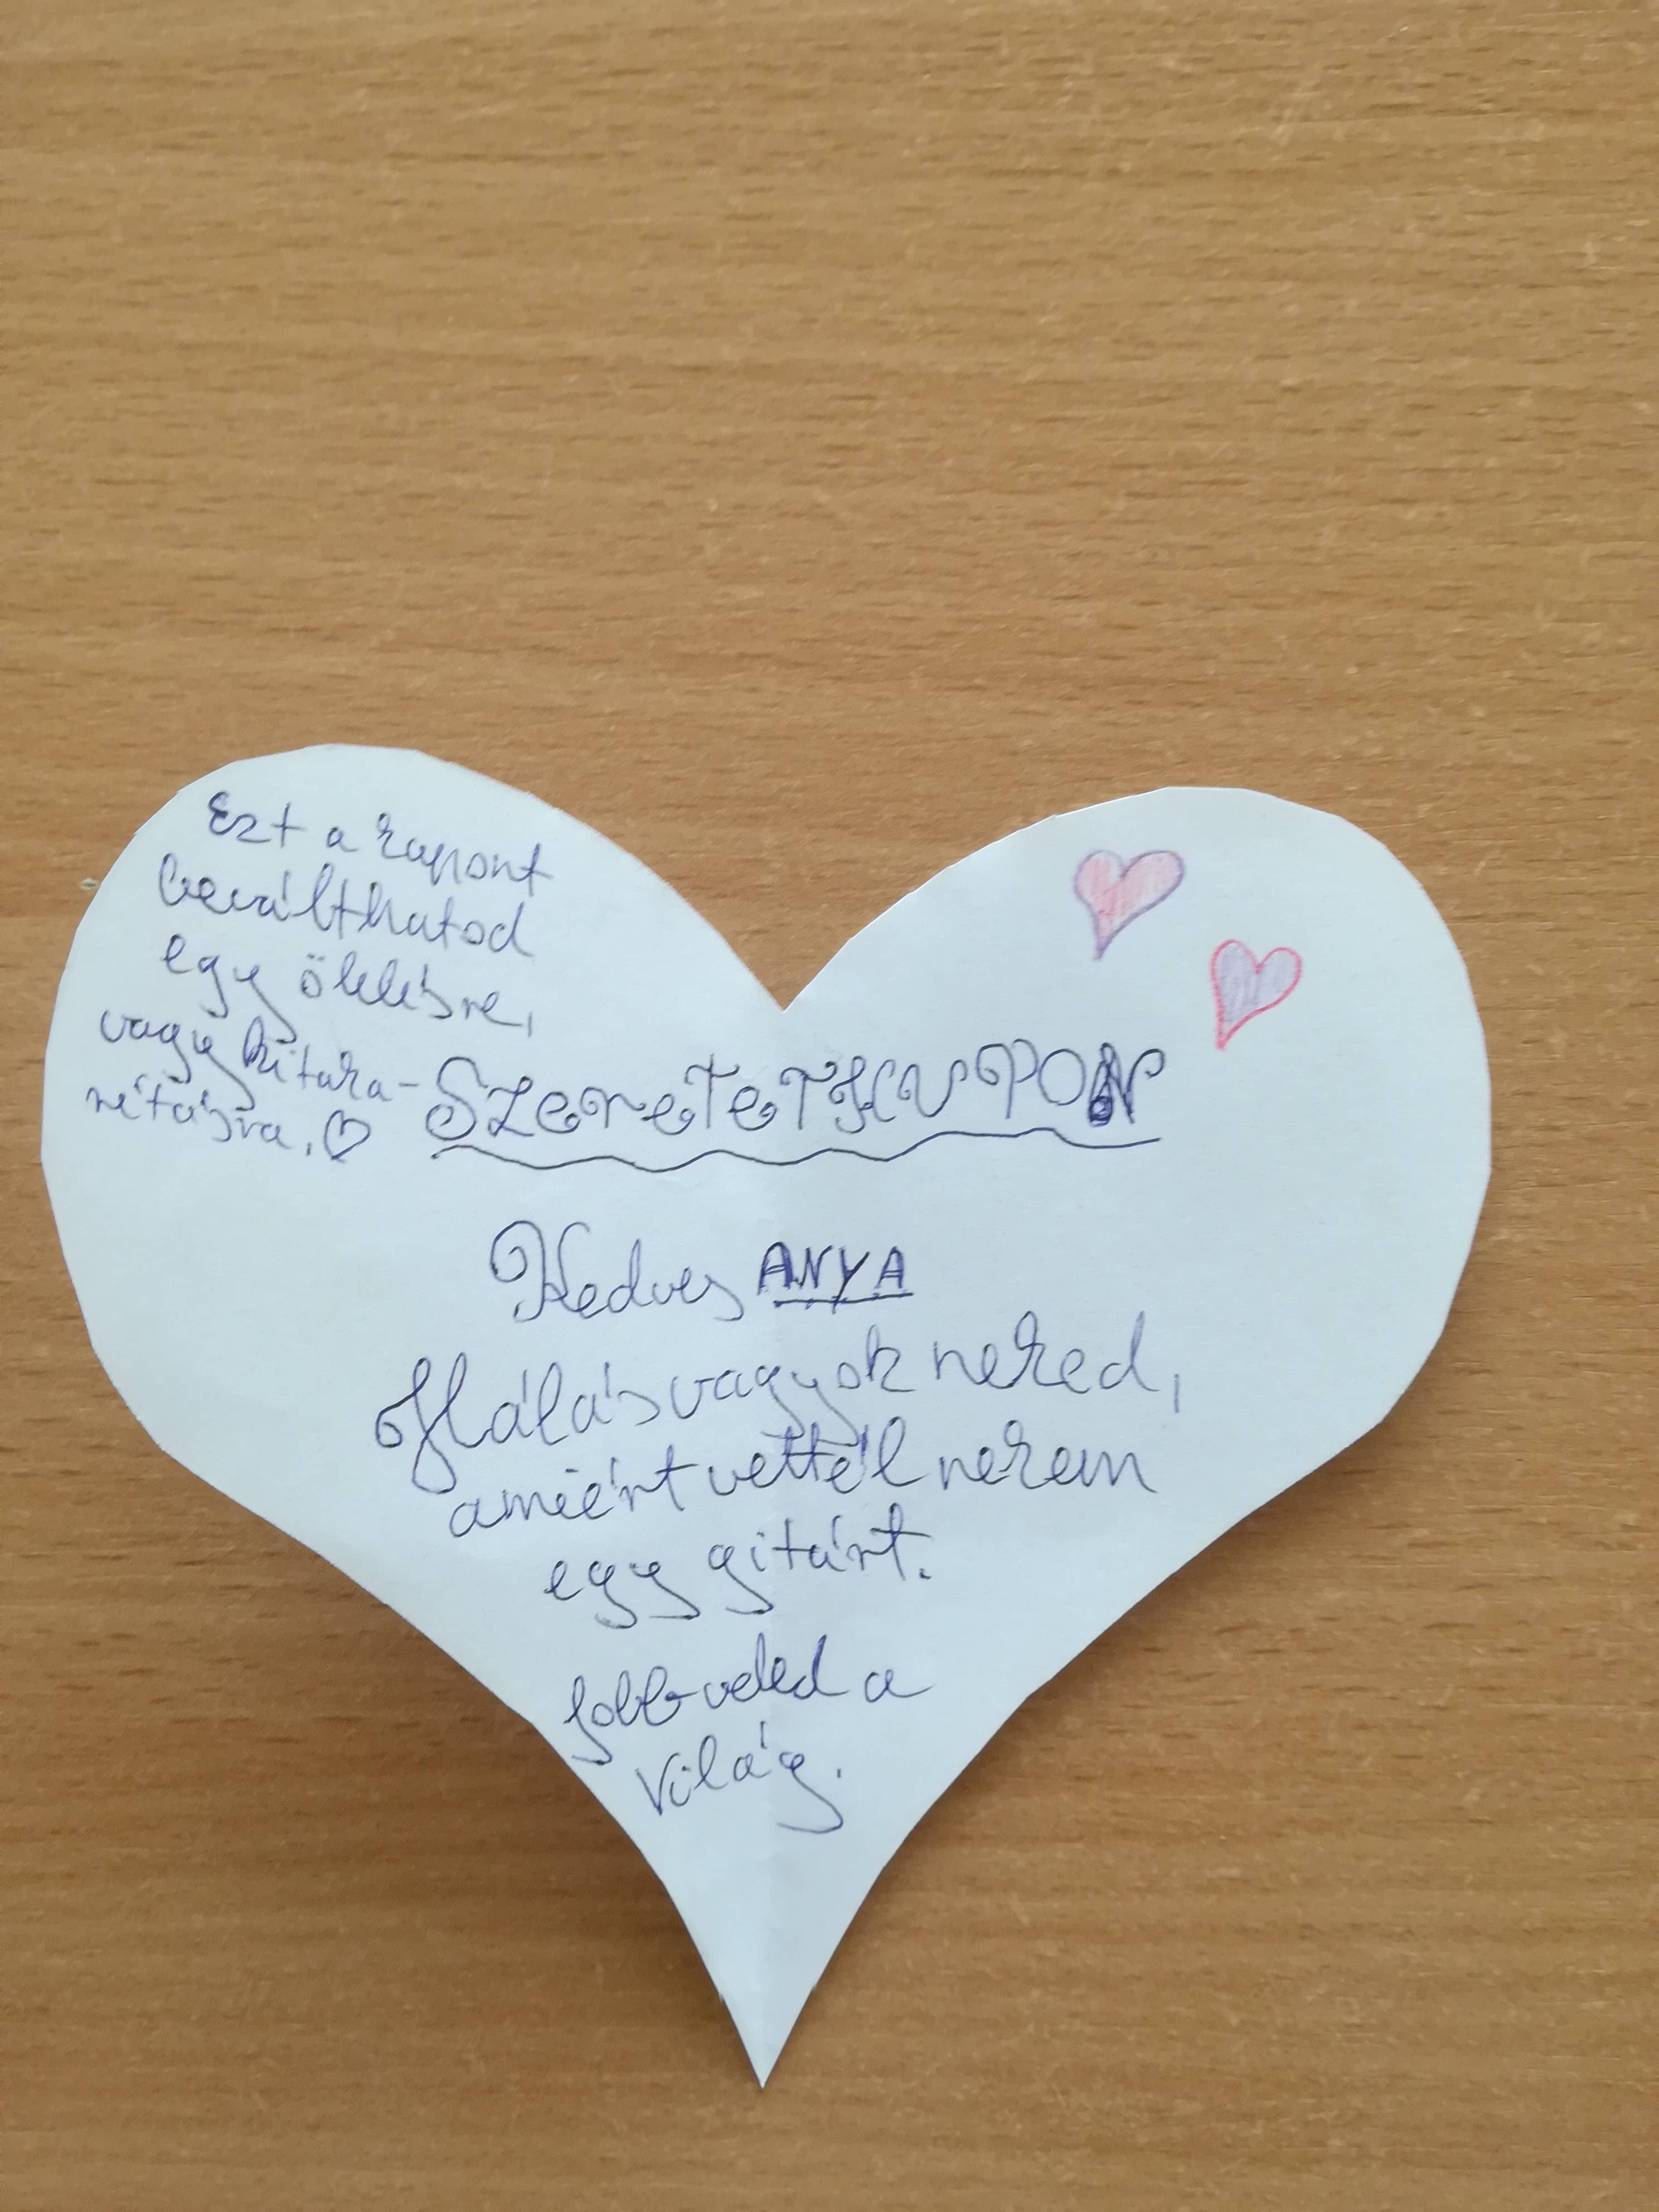 Ezt a kupont
beválthatod
egy ölelésre,
vagy kitaka-
rításra. ♡
SZERETETKUPON
Kedves ANYA
Hálás vagyok neked,
amiért vettél nekem
egy gitárt.
Jobb veled a
Világ.